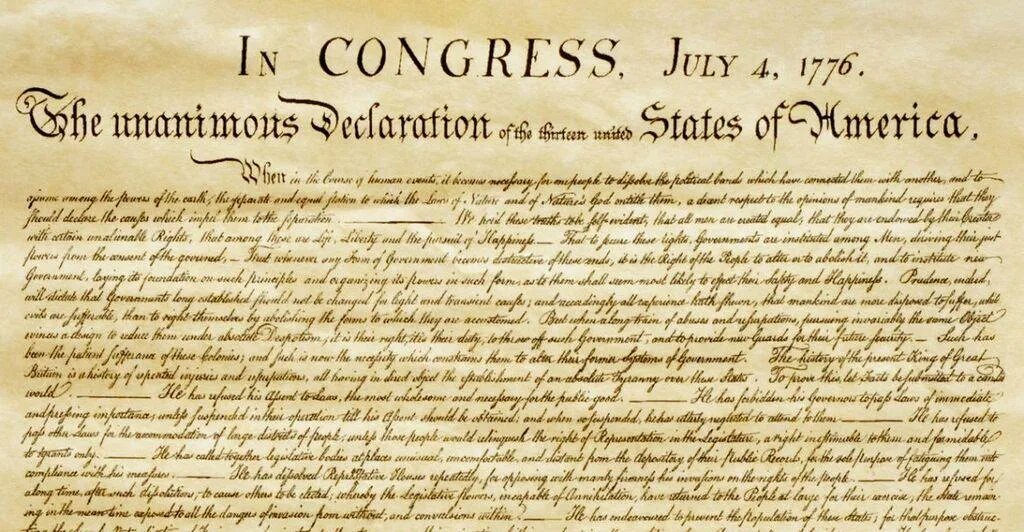 In CONGRESS, July 4, 1776.
The unanimous Declaration of the thirteen united States of America,
When in the Course of human events, it becomes necessary for one people to dissolve the political bands which have connected them with another, and to
assume among the powers of the earth, the separate and equal station to which the Laws of Nature and of Nature's God entitle them, a decent respect to the opinions of mankind requires that they
should declare the causes which impel them to the separation. ——— We hold these truths to be self-evident, that all men are created equal, that they are endowed by their Creator
with certain unalienable Rights, that among these are Life, Liberty and the pursuit of Happiness.— That to secure these rights, Governments are instituted among Men, deriving their just
powers from the consent of the governed,— That whenever any Form of Government becomes destructive of these ends, it is the Right of the People to alter or to abolish it, and to institute new
Government, laying its foundation on such principles and organizing its powers in such form, as to them shall seem most likely to effect their Safety and Happiness. Prudence, indeed,
will dictate that Governments long established should not be changed for light and transient causes; and accordingly all experience hath shewn, that mankind are more disposed to suffer, while
evils are sufferable, than to right themselves by abolishing the forms to which they are accustomed. But when a long train of abuses and usurpations, pursuing invariably the same Object
evinces a design to reduce them under absolute Despotism, it is their right, it is their duty, to throw off such Government, and to provide new Guards for their future security.— Such has
been the patient sufferance of these Colonies; and such is now the necessity which constrains them to alter their former Systems of Government. The history of the present King of Great
Britain is a history of repeated injuries and usurpations, all having in direct object the establishment of an absolute Tyranny over these States. To prove this, let Facts be submitted to a candid
world. ——— He has refused his Assent to Laws, the most wholesome and necessary for the public good. ——— He has forbidden his Governors to pass Laws of immediate
and pressing importance, unless suspended in their operation till his Assent should be obtained; and when so suspended, he has utterly neglected to attend to them. ——— He has refused to
pass other Laws for the accommodation of large districts of people, unless those people would relinquish the right of Representation in the Legislature, a right inestimable to them and formidable
to tyrants only. ——— He has called together legislative bodies at places unusual, uncomfortable, and distant from the depository of their Public Records, for the sole purpose of fatiguing them into
compliance with his measures. ——— He has dissolved Representative Houses repeatedly, for opposing with manly firmness his invasions on the rights of the people. ——— He has refused for
a long time, after such dissolutions, to cause others to be elected; whereby the Legislative powers, incapable of Annihilation, have returned to the People at large for their exercise; the State remain-
ing in the mean time exposed to all the dangers of invasion from without, and convulsions within. ——— He has endeavoured to prevent the population of these States; for that purpose obstruc-